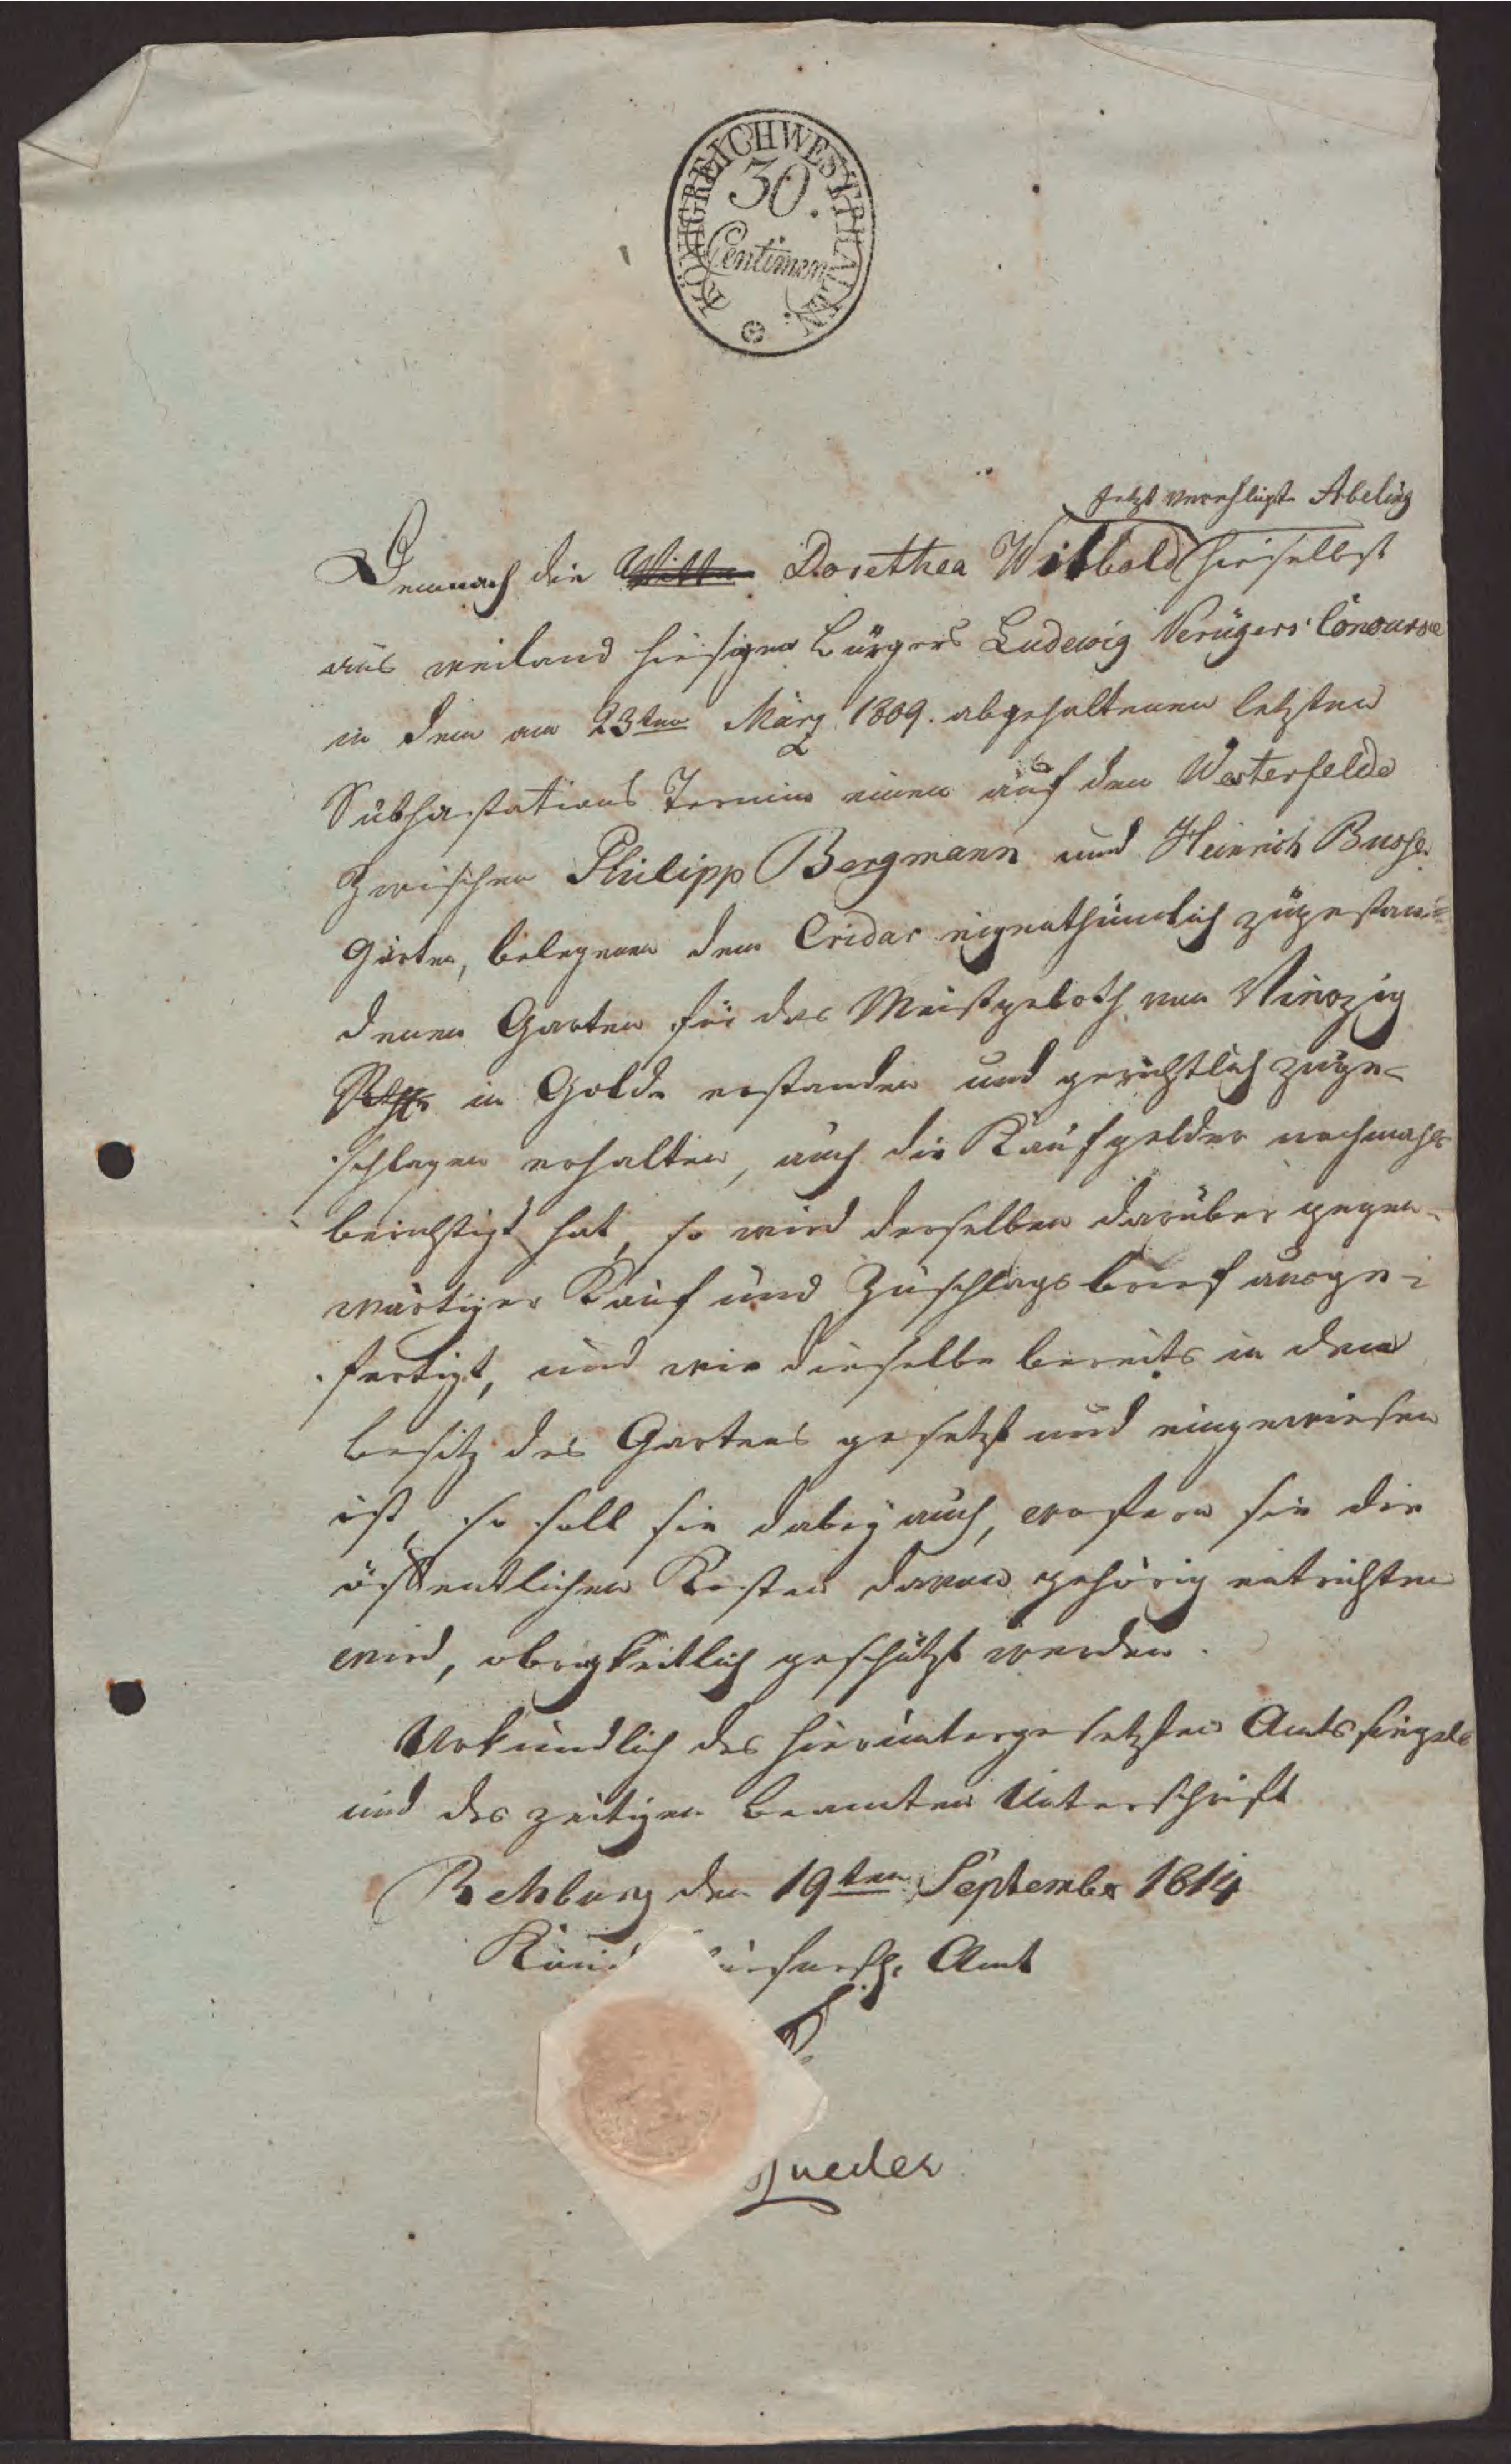 KÖNIGREICH WESTPHALEN.
30.
Centimen
jetzt verehligte Abeling
Demnach die Witwe Dorethea Witbold hieselbst
aus weiland hiesigen Bürgers Ludewig Concurse
in dem am 23ten März 1809. abgehaltenen letzten
Subhastations Termin einen auf dem Westerfelde
zwischen Philipp Bergmann und Heinrich Busse
Gärten, belegenen dem Cridar eigenthümlich zugestan-
denen Garten für das Meistgeboth von Vierzig
Rthlr in Golde erstanden und gerichtlich zuge-
schlagen erhalten, auch die Kaufgelder nachmahls
berichtigt hat, so wird derselben darüber gegen-
wärtiger Kauf und Zuschlagsbrief ausge-
fertigt, und wie dieselbe bereits in den
Besitz des Gartens gesetzt und eingewiesen
ist, so soll sie dabey auch, wofern sie die
öffentlichen Lasten davon gehörig entrichten
wird, obrigkeitlich geschützt werden.
Urkundlich des hieruntergesetzten Amtssiegels
und des zeitigen Beamten Unterschrift
Rehburg den 19ten September 1814
Amt
Lueder